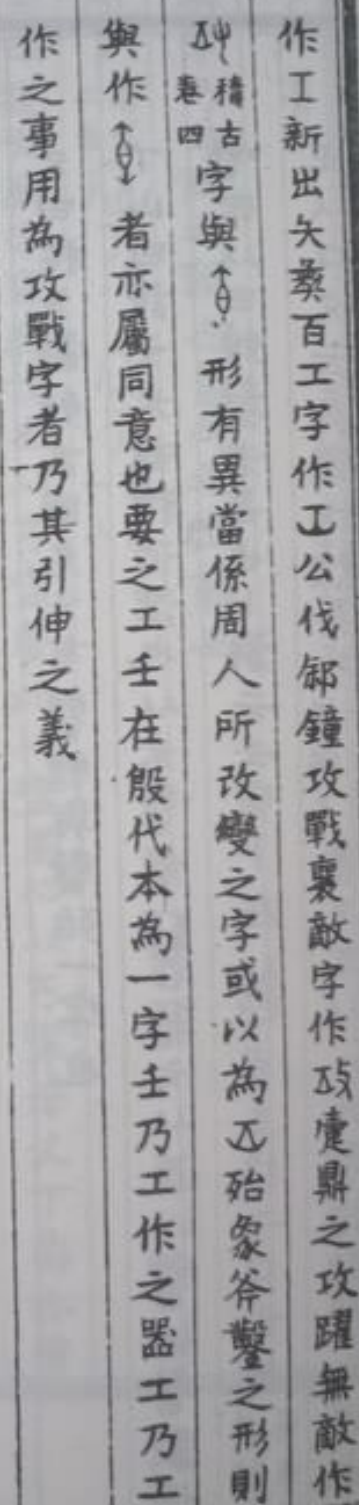 作工新出矢彝百工字作工公伐郘鐘攻戰褱敵字作攻疐鼎之攻躍無敵作
積古卷四字與形有異當係周人所改變之字或以為殆象斧鑿之形則
與作者亦屬同意也要之工壬在殷代本為一字壬乃工作之器工乃工
作之事用為攻戰字者乃其引伸之義